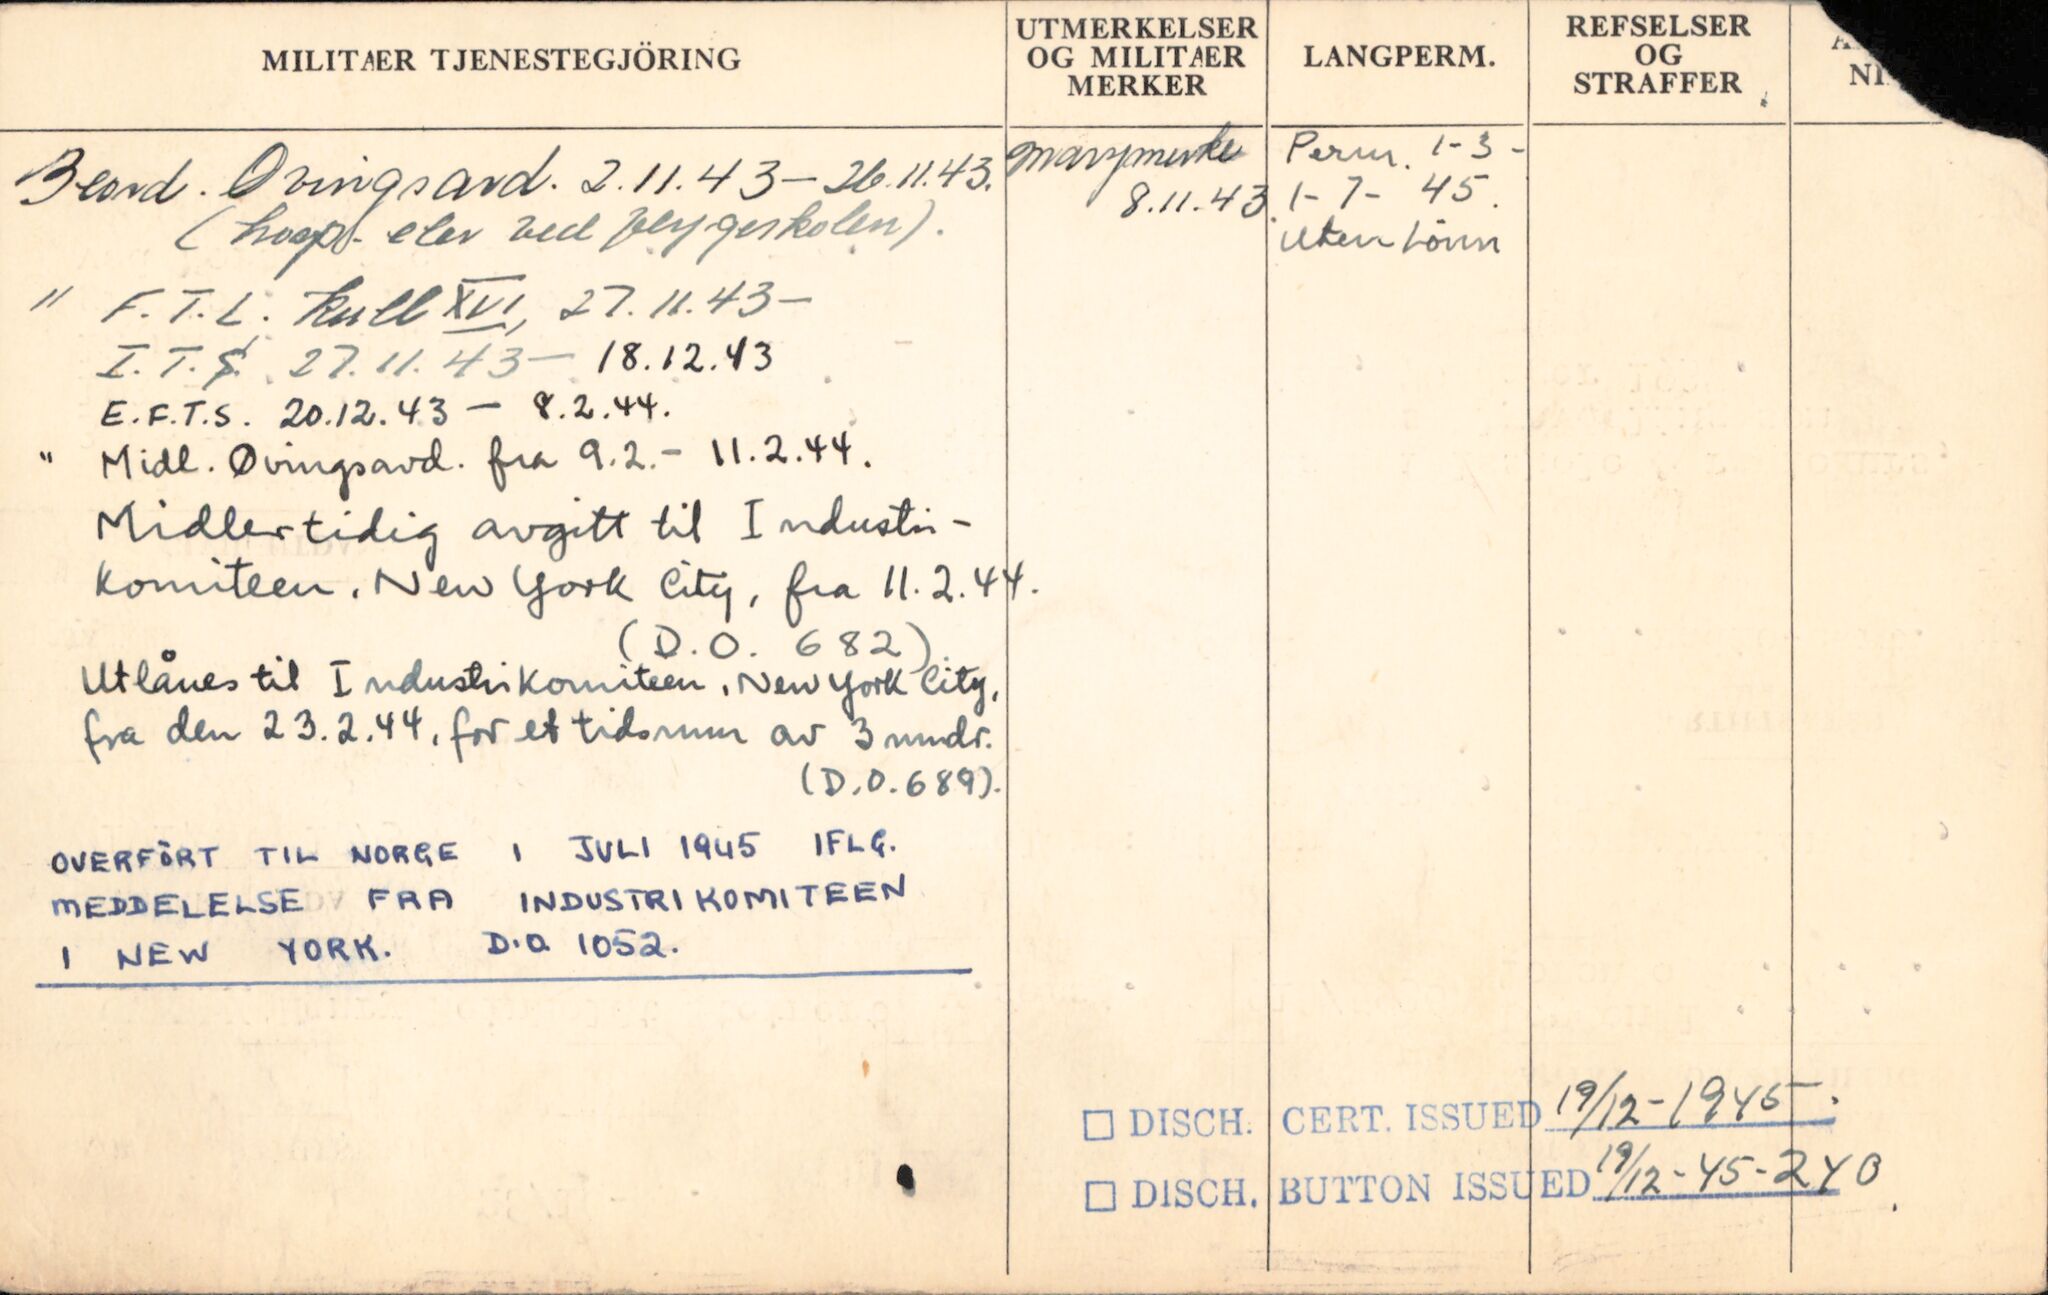 MILITÆR TJENESTEGJÖRING
UTMERKELSER
OG MILITÆR
MERKER
LANGPERM.
REFSELSER
OG
STRAFFER
Beord. Øvingsavd. 2.11.43 – 26.11.43.
(hosp. elev ved flygeskolen).
" F.T.L. Kull XVI, 27.11.43 –
I.T.S. 27.11.43 – 18.12.43
E.F.T.S. 20.12.43 – 8.2.44.
" Midl. Øvingsavd. fra 9.2.– 11.2.44.
Midlertidig avgitt til Industri-
komiteen, New York City, fra 11.2.44.
(D.O. 682)
Utlånes til Industrikomiteen, New York City,
fra den 23.2.44, for et tidsrum av 3 mndr.
(D.O.689).
OVERFÖRT TIL NORGE I JULI 1945 IFLG.
MEDDELELSE FRA INDUSTRIKOMITEEN
I NEW YORK. D.O. 1052.
8.11.43
Perm. 1-3-
1-7- 45.
Uten lönn
DISCH. CERT. ISSUED 19/12-1945.
DISCH. BUTTON ISSUED 19/12-45-240